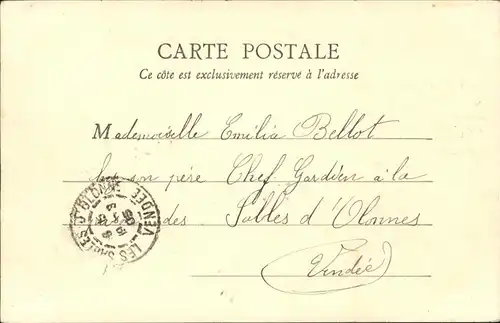 CARTE POSTALE
Ce côte est exclusivement réservé à l'adresse
Mademoiselle Emilia Bellot
son père Chef Gardien à la
des Sables d'Olonnes
Vendée
LES SABLES D'OLONNE
VENDÉE